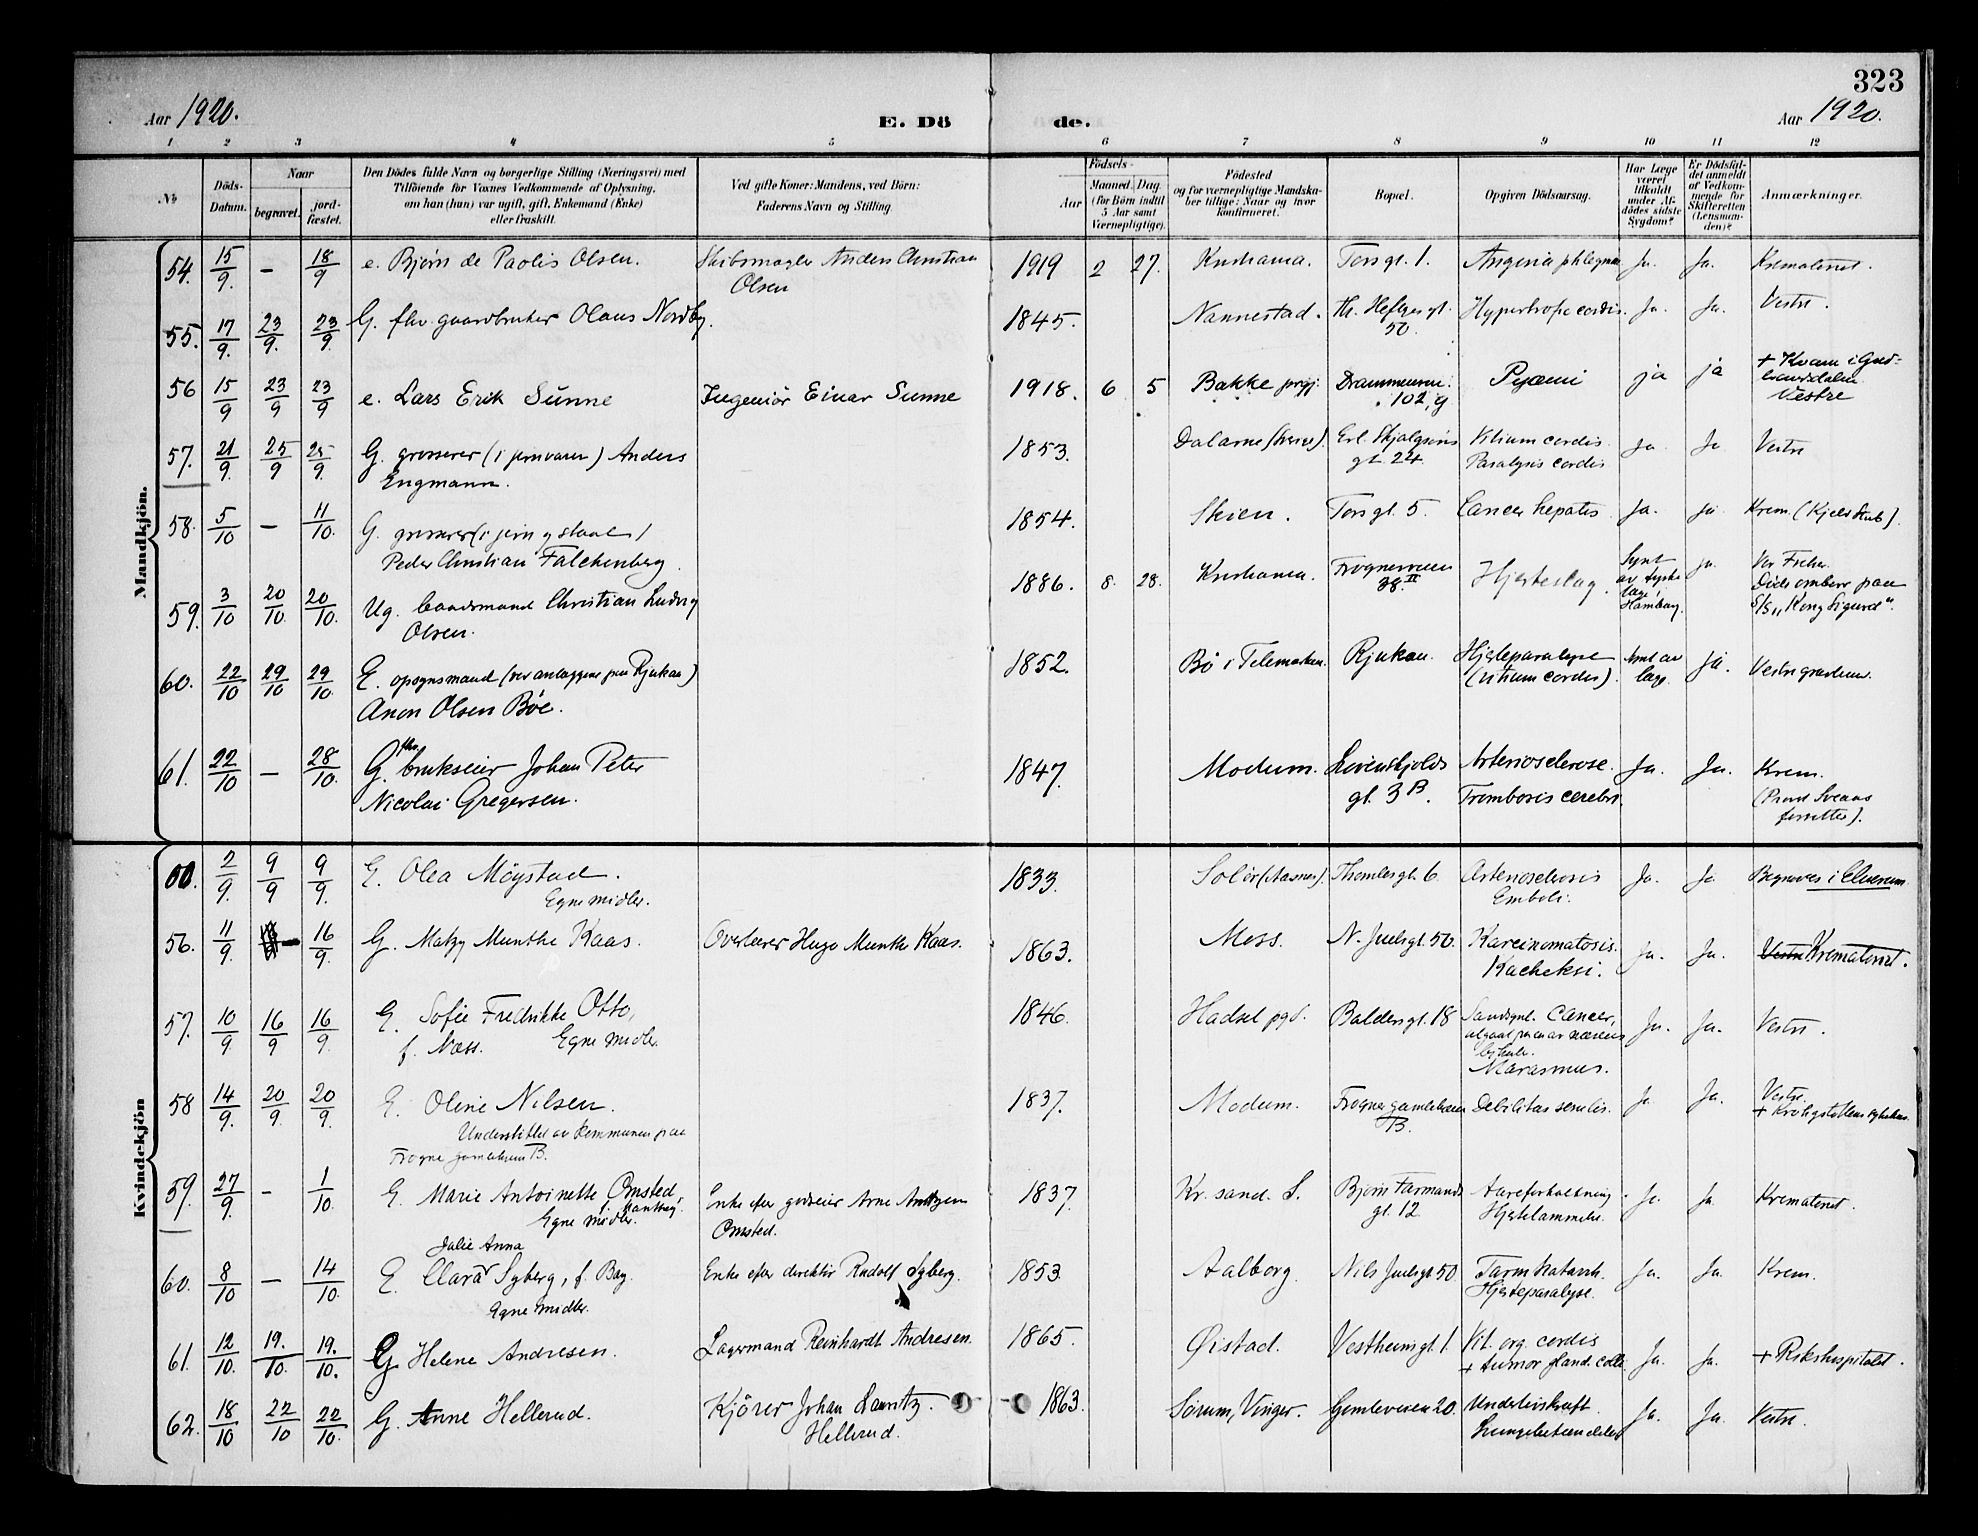 323
Aar 1920.
E. Dö
de.
Aar 1920.
1 2 3 4 5 6 7 8 9 10 11 12
№
Döds-Datum.
Naar
begravet.
jord-fæstet.
Den Dödes fulde Navn og borgerlige Stilling (Næringsvei) med
Tilföiende för Voxnes Vedkommende af Oplysning,
om han (hun) var ugift, gift, Enkemand (Enke)
eller fraskilt.
Ved gifte Koner: Mandens, ved Börn:
Faderens Navn og Stilling.
Födsels-
Aar
Maaned. Dag.
(for Börn indtil
5 Aar samt
Værnepligtige).
Födested
og for værnepligtige Mandska-
ber tillige: Naar og hvor
konfirmeret.
Bopæl.
Opgiven Dödsaarsag.
Har Læge
været
tilkaldt
under Af-
dödes sidste
Sygdom?
Er Dödsfal-
det anmeldt
af Vedkom-
mende for
Skifteretten
(Lensman-
den)?
Anmærkninger.
Mandkjön.
54. 15/9. – 18/9 e. Bjørn de Paolis Olsen. Skibsmægler Anders Christian 1919 2 27. Kristiania. Torsgt. 1. Angina Ja. Ja. Krematoriet.
Olsen
55. 17/9. 23/9. 23/9. G. fhv. gaardbruker Olaus Nordby. 1845. Nannestad. Th. Heftyes gt. Hypertrofi cordis. Ja. Ja. Vestre.
50.
56 15/9 23/9 23/9 e. Lars Erik Sunne Ingeniör Einar Sunne 1918. 6 5 Bakke prgj. Drammensvn. Pyæmi ja ja + Kvam i Gud-
102, g brandsdalen
Vestre
57. 21/9. 25/9 25/9. G. grosserer (i jernvarer) Anders 1853. Dalarne (Sverige). Erl. Skjalgsöns Vitium cordis. Ja. Ja Vestre
Engmann. gt. 24. Paralysis cordis
58. 5/10 – 11/10. G. grosserer (i jern og staal) 1854. Skien. Torsgt. 5. Cancer hepatis. Ja. ja. Krem. (Kjeld Stub).
Peder Christian Falchenberg.
59. 3/10 20/10. 20/10. Ug. baadsmand Christian Ludvig 1886. 8. 28. Kristiania. Frognerveien Hjerteslag. Synt ja. Vor Frelser.
Olsen. 38 II av tyske Döds ombord paa
læge, S/S „Kong Sigurd“.
Hamburg.
60. 22/10 29/10 29/10. E. opsynsmand (ved anlæggene paa Rjukan) 1852. Bö i Telemarken. Rjukan. Hjerteparalyse Synt av ja. Vestre gravlund.
Anon Olsen Böe. (vitium cordis). læge
61. 22/10 – 28/10. G. fhv. brukseier Johan Peter 1847. Modum. Lövenskjolds Arteriosclerose. Ja. Ja. Krem.
Nicolai Gregersen. gt. 3 B. Trombosis cerebri. (Provst Sveaas
forretter).
Kvindekjön
2/9. 9/9 9/9. E. Olea Möystad. 1833. Solör (Aasnes). Thomlesgt. 6. Arteriosclerosis Ja. Ja Begraves i Elverum
Egne midler. Emboli.
56. 11/9. – 16/9. G. Matzy Munthe Kaas. Overlærer Hugo Munthe Kaas. 1863. Moss. N. Juelsgt. 50. Karcinomatosis. Ja. Ja. Vestre Krematoriet.
Kacheksi.
57. 10/9. 16/9 16/9. E. Sofie Fredrikke Otto, 1846. Hadsel pgd. Baldersgt. 18 Cancer, Ja. Ja. Vestre.
f. Næss. Egne midler.
Marasmus.
58 14/9. 20/9. 20/9. E. Oline Nilsen. 1837. Modum. Frogner gamlehjem Debilitas senilis. Ja Ja. Vestre.
B. + Krohgstöttens sykehus.
Understöttet av kommunen paa
Frogner gamlehjem B.
59. 27/9. – 1/10. E. Marie Antoinette Omsted, Enke efter godseier Arne Arntzen 1837. Kr. sand. S. Bjørn Farmands Aareforkalkning. Ja. Ja Krematoriet.
Egne midler. Omsted. gt. 12. Hjertelammelse.
Julie Anna
60. 8/10 – 14/10. E. Clara Syberg, f. Bay. Enke efter direktör Rudolf Syberg. 1853. Aalborg. Nils Juelsgt. 50 Tarmkatarrh. Ja. Ja. Krem.
Egne midler. Hjerteparalyse.
61. 12/10. 19./10. 19./10. G Helene Andresen. Lagermand Reinhardt Andresen. 1865. Øistad. Vestheimgt. 1. Vit. org. cordis Ja. Ja. + Rikshospitalet.
+ tumor gland. colli
62. 18/10 22/10 22/10. G. Anne Hellerud. Kjörer Johan Lauritz 1863. Sörum, Vinger. Gimleveien 20. Underlivskræft Ja. Ja. Vestre.
Hellerud.